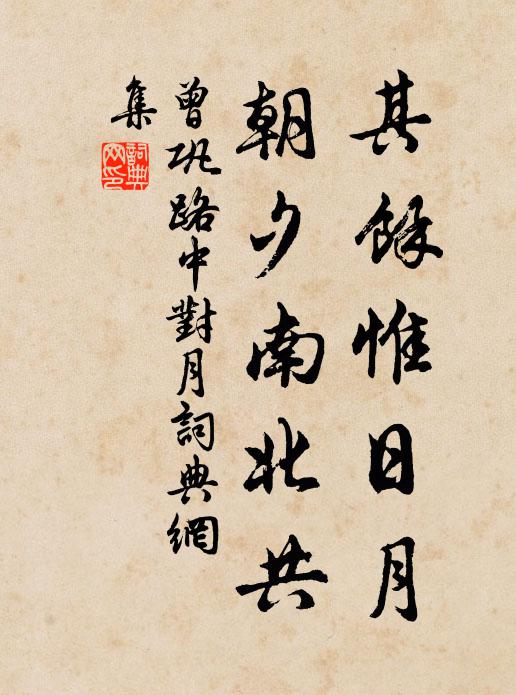 其餘惟日月
朝夕南北共
曾巩路中對月詞典網
集
詞典
网印